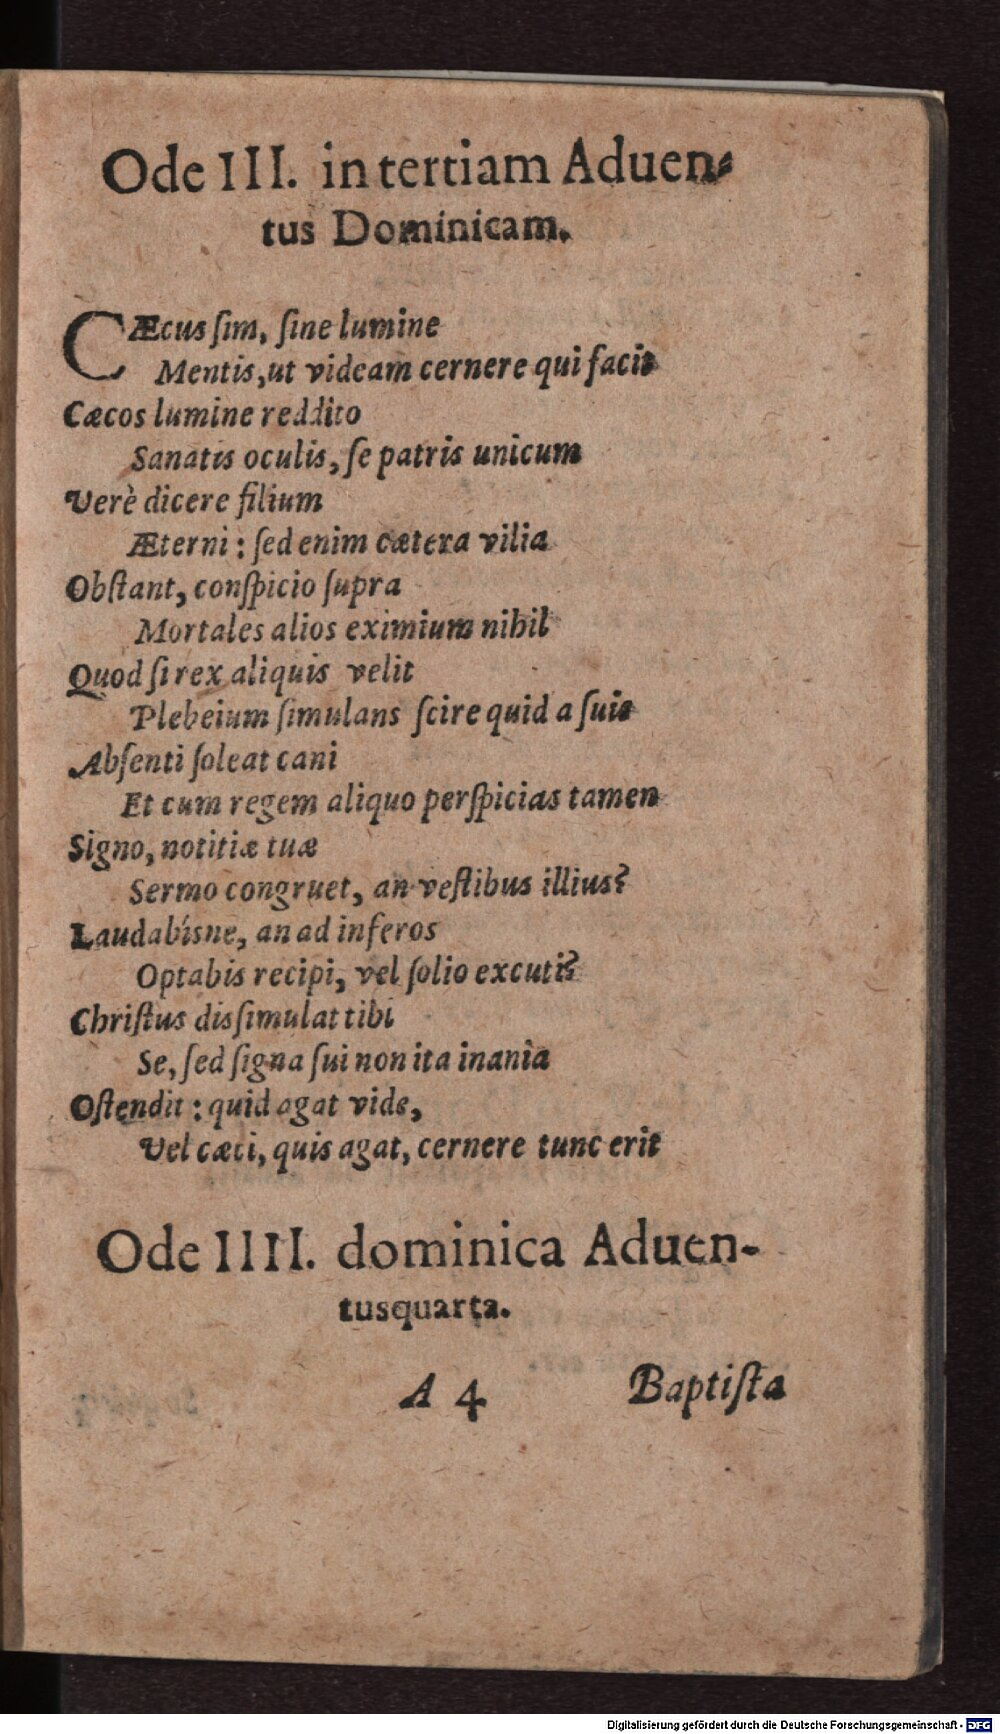 Ode III. in tertiam Aduen-
tus Dominicam.
CÆcus ſim, ſine lumine
Mentis, ut videam cernere qui facit
Cæcos lumine reddito
Sanatis oculis, ſe patris unicum
Verè dicere filium
Æterni : ſed enim cætera vilia
Obſtant, conſpicio ſupra
Mortales alios eximium nihil
Quod ſi rex aliquis velit
Plebeium ſimulans ſcire quid a ſuis
Abſenti ſoleat cani
Et cum regem aliquo perſpicias tamen
Signo, notitiæ tuæ
Sermo congruet, an veſtibus illius?
Laudabísne, an ad inferos
Optabis recipi, vel ſolio excuti?
Chriſtus disſimulat tibi
Se, ſed ſigna ſui non ita inania
Oſtendit : quid agat vide,
Vel cæci, quis agat, cernere tunc erit
Ode IIII. dominica Aduen-
tusquarta.
A 4 Baptiſta
Digitalisierung gefördert durch die Deutsche Forschungsgemeinschaft - DFG